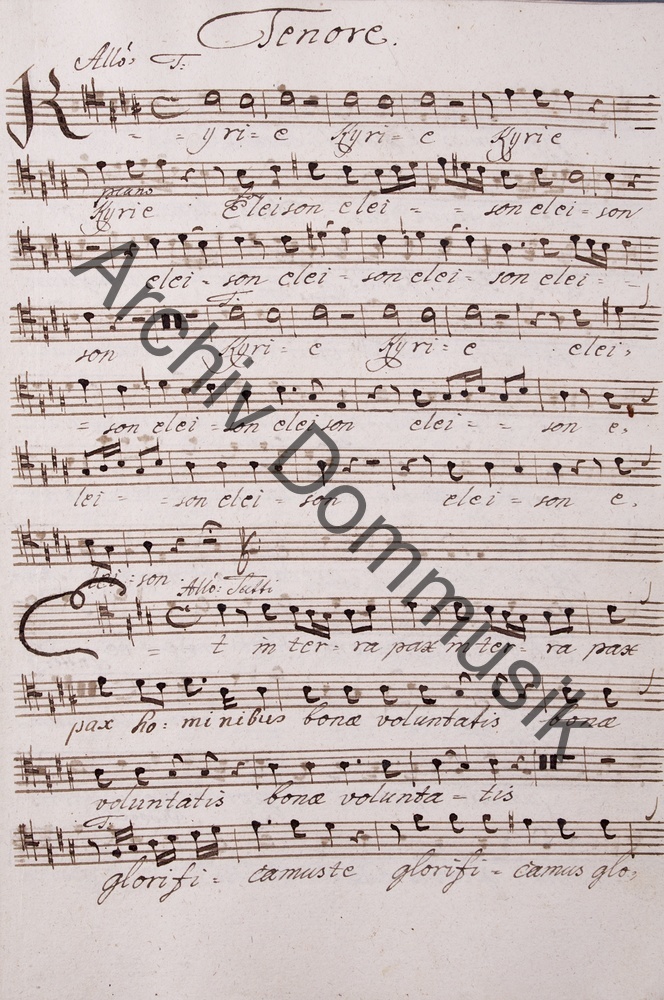 Tenore.
Allo: T:
Kyri = e Kyri = e Kyrie
piano
Kyrie Eleison elei = = son elei = son
elei = son elei = son elei = son elei =
T:
son Kyri = e Kyri = e elei,
= son elei = son eleison elei = = son e,
lei = = son elei = son elei = son e,
lei = son
Allo: Tutti
Et in ter = ra pax in ter = ra pax
pax ho: minibus bonæ voluntatis bonæ
voluntatis bonæ volunta = tis
T:
glorifi = camus te glorifi = camus glo,
Archiv Dommusik